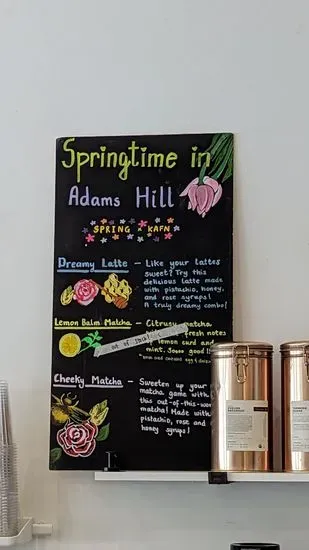 Springtime in
Adams Hill
SPRING KAFN
Dreamy Latte - Like your lattes
sweet? Try this
delicious latte made
with pistachio, honey,
and rose syrups!
A truly dreamy combo!
Lemon Balm Matcha - Citrusy matcha
fresh notes
lemon curd and
mint. Sooo good!
out of stock
Cheeky Matcha - Sweeten up your
matcha game with
this out-of-this-wo
matcha! Made with
pistachio, rose and
honey syrups!